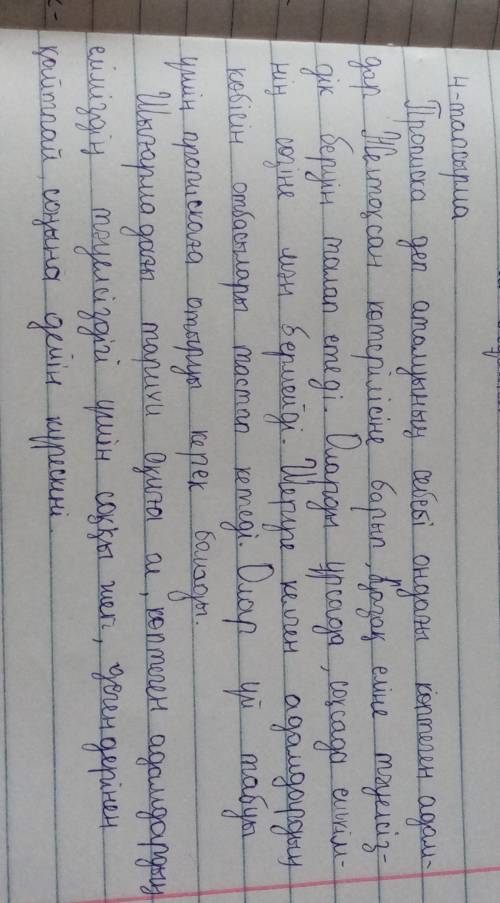 4-тапсырма
Прописка деп аталуының себебі ондағы көптеген адам-
дар Желтоқсан көтерілісіне барып, Қазақ еліне тәуелсіз-
дік беруін талап етеді. Оларды ұрсада, соқсада ешкім-
нің сөзіне мән бермейді. Шеруге келген адамдардың
көбісін отбасылары тастап кетеді. Олар үй табуы
үшін пропискаға отыруы керек болады.
Шығармадағы тарихи оқиға ол, көптеген адамдардың
еліміздің тәуелсіздігі үшін соққы жеп, дегендерінен
қайтпай, соңына дейін күрескені.